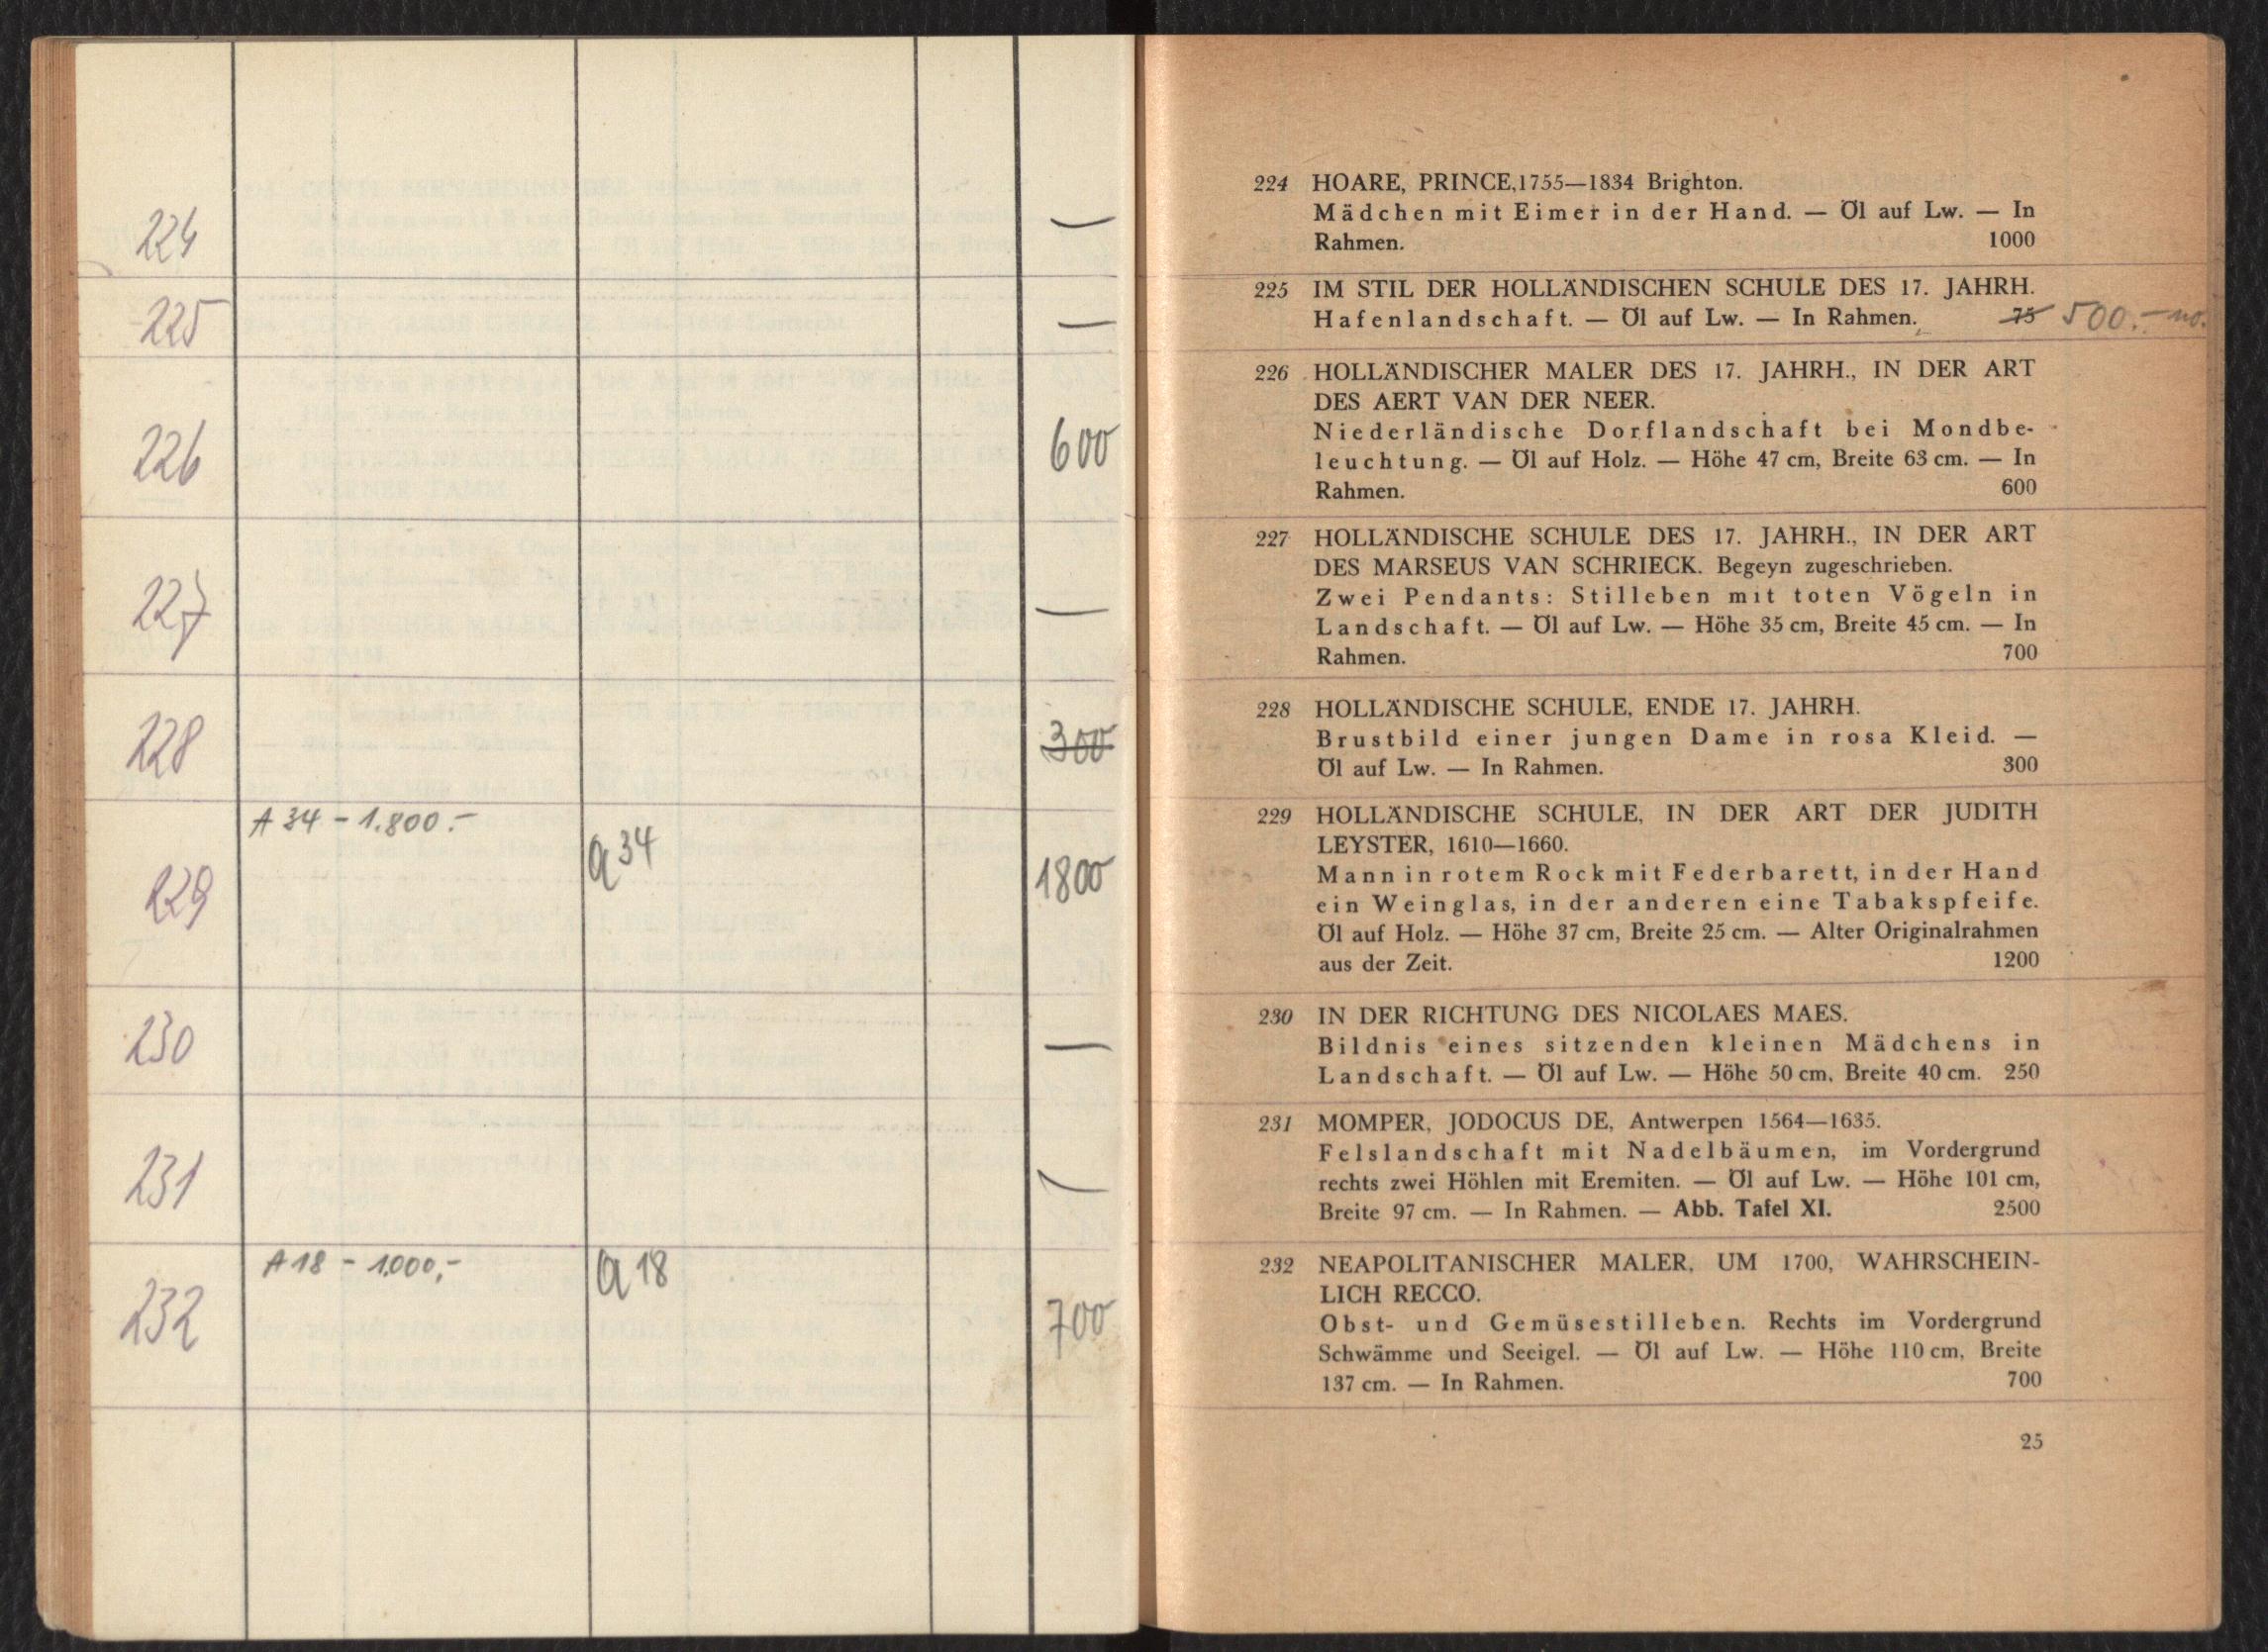 224 —
225 —
226 600
227 —
228 300
A 34 - 1.800.-
229 a 34 1800
230 —
231 —
A 18 - 1000,-
232 a 18 700
224 HOARE, PRINCE,1755—1834 Brighton.
Mädchen mit Eimer in der Hand. — Öl auf Lw. — In
Rahmen. 1000
225 IM STIL DER HOLLÄNDISCHEN SCHULE DES 17. JAHRH.
Hafenlandschaft. — Öl auf Lw. — In Rahmen. 75 500.-
226 HOLLÄNDISCHER MALER DES 17. JAHRH., IN DER ART
DES AERT VAN DER NEER.
Niederländische Dorflandschaft bei Mondbe-
leuchtung. — Öl auf Holz. — Höhe 47 cm, Breite 63 cm. — In
Rahmen. 600
227 HOLLÄNDISCHE SCHULE DES 17. JAHRH., IN DER ART
DES MARSEUS VAN SCHRIECK. Begeyn zugeschrieben.
Zwei Pendants: Stilleben mit toten Vögeln in
Landschaft. — Öl auf Lw. — Höhe 35 cm, Breite 45 cm. — In
Rahmen. 700
228 HOLLÄNDISCHE SCHULE, ENDE 17. JAHRH.
Brustbild einer jungen Dame in rosa Kleid. —
Öl auf Lw. — In Rahmen. 300
229 HOLLÄNDISCHE SCHULE, IN DER ART DER JUDITH
LEYSTER, 1610—1660.
Mann in rotem Rock mit Federbarett, in der Hand
ein Weinglas, in der anderen eine Tabakspfeife.
Öl auf Holz. — Höhe 37 cm, Breite 25 cm. — Alter Originalrahmen
aus der Zeit. 1200
230 IN DER RICHTUNG DES NICOLAES MAES.
Bildnis eines sitzenden kleinen Mädchens in
Landschaft. — Öl auf Lw. — Höhe 50 cm, Breite 40 cm. 250
231 MOMPER, JODOCUS DE, Antwerpen 1564—1635.
Felslandschaft mit Nadelbäumen, im Vordergrund
rechts zwei Höhlen mit Eremiten. — Öl auf Lw. — Höhe 101 cm,
Breite 97 cm. — In Rahmen. — Abb. Tafel XI. 2500
232 NEAPOLITANISCHER MALER, UM 1700, WAHRSCHEIN-
LICH RECCO.
Obst- und Gemüsestilleben. Rechts im Vordergrund
Schwämme und Seeigel. — Öl auf Lw. — Höhe 110 cm, Breite
137 cm. — In Rahmen. 700
25